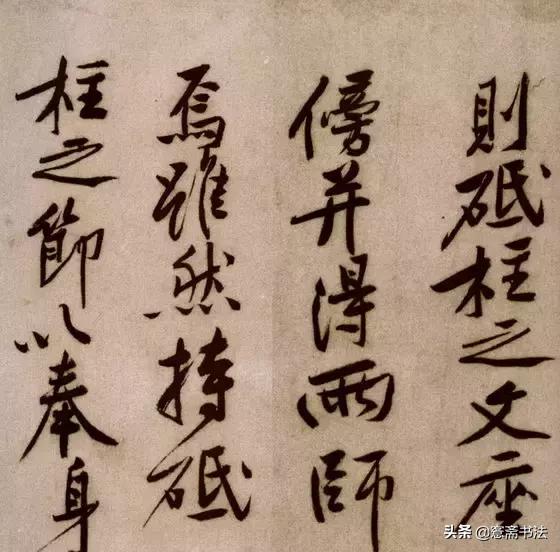 則砥柱之文座
傍并得兩師
焉雖然持砥
柱之節以奉身
头条 @窓斋书法